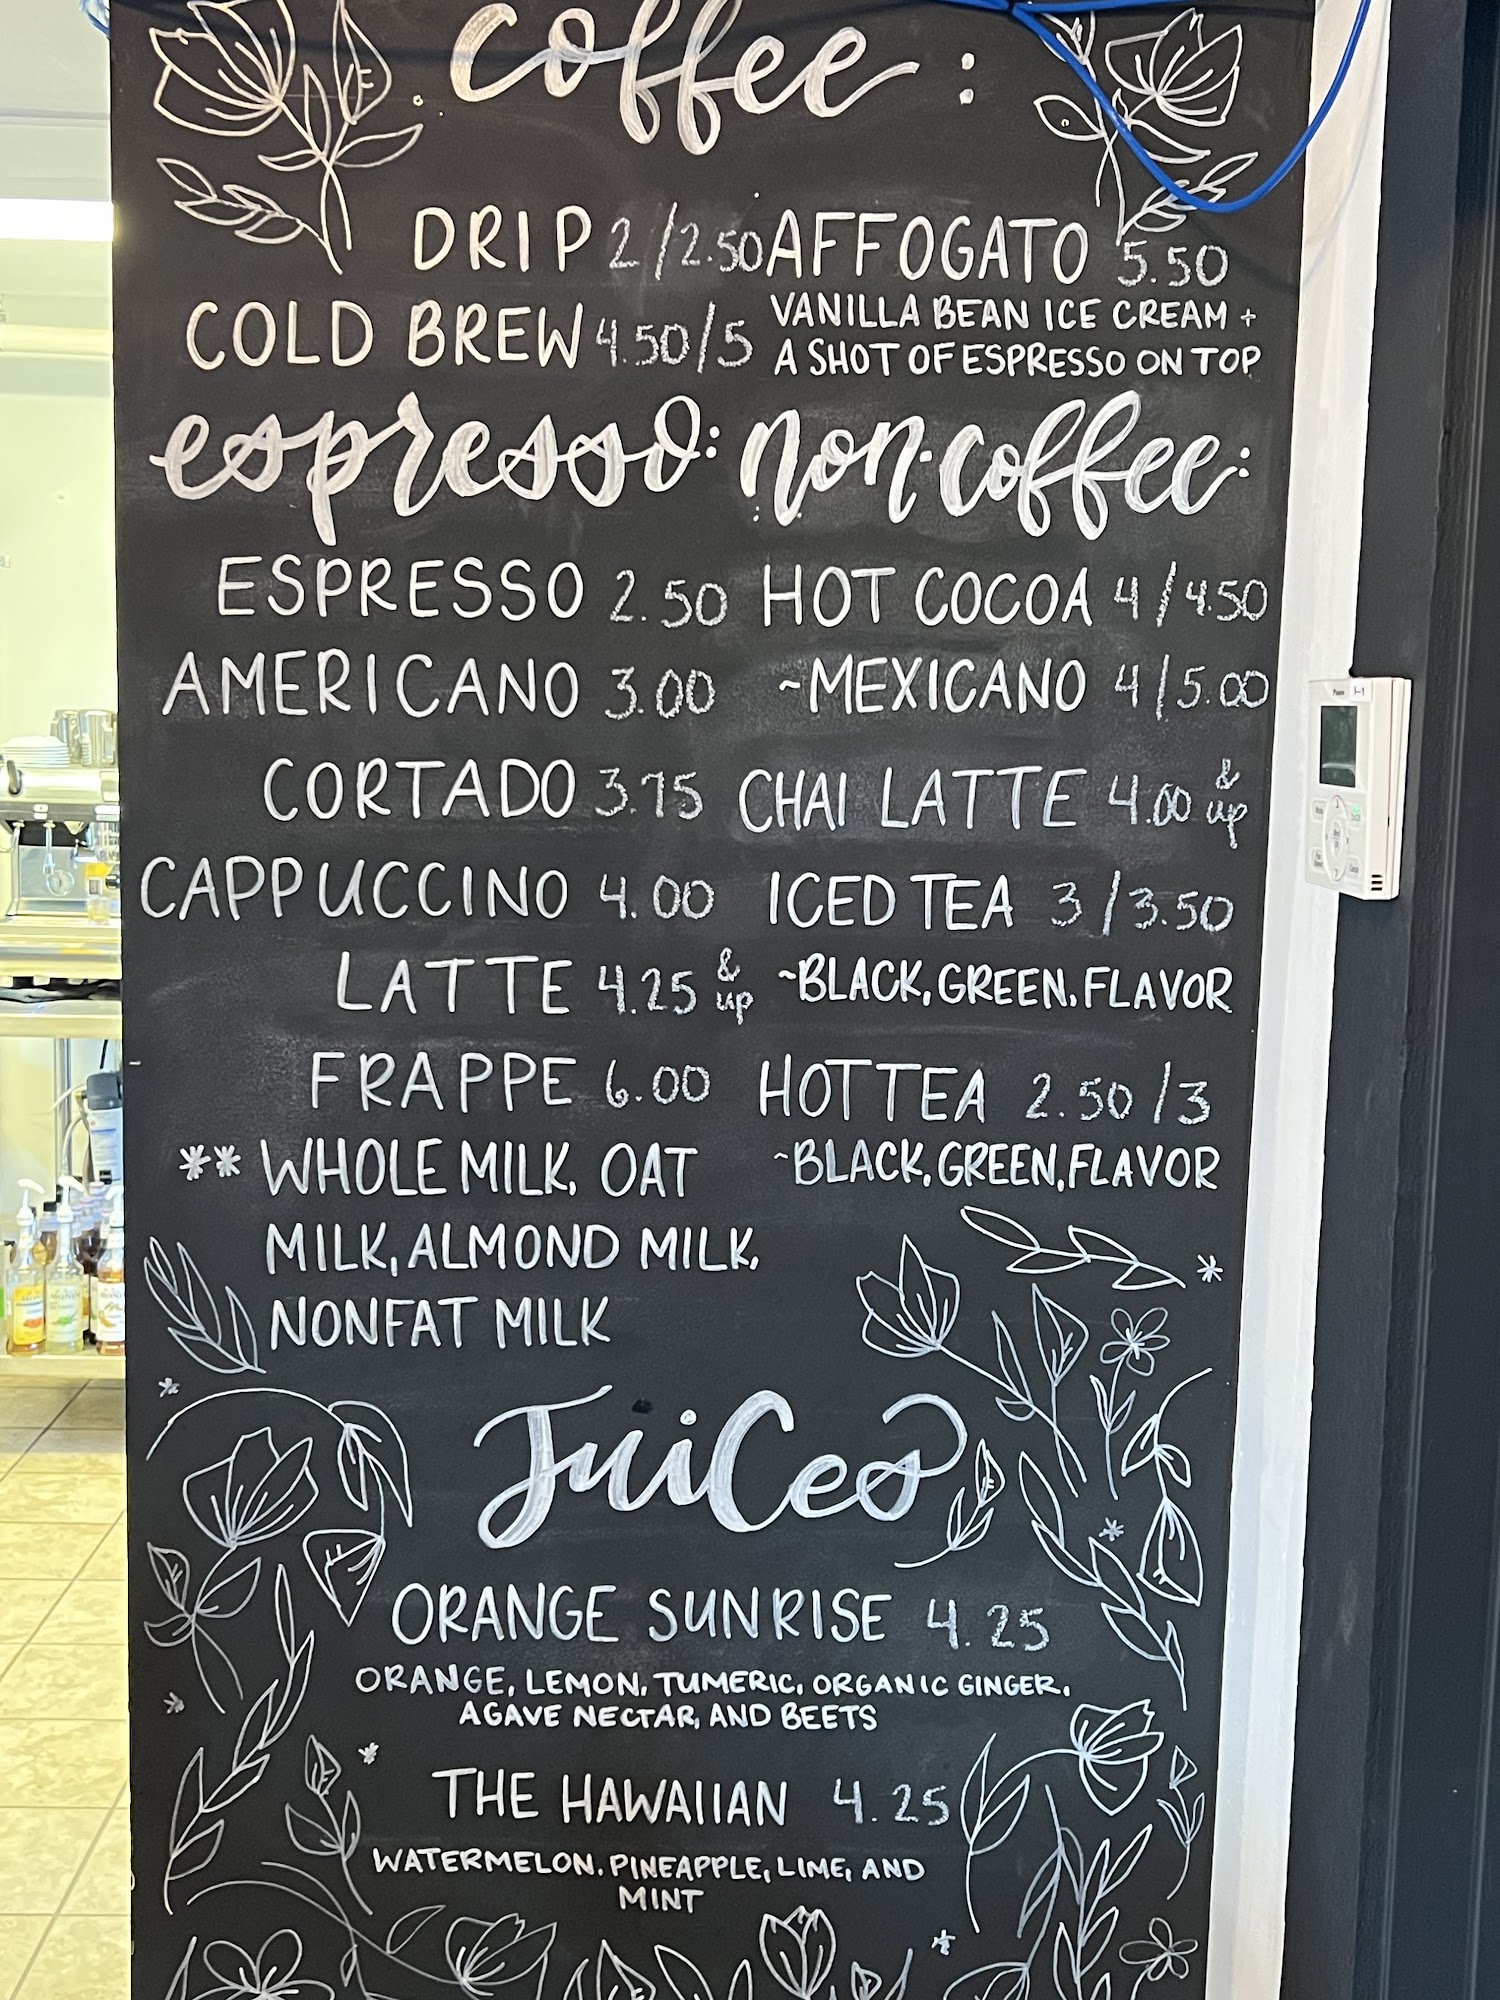 coffee:
DRIP 2/2.50
COLD BREW 4.50/5
AFFOGATO 5.50
VANILLA BEAN ICE CREAM +
A SHOT OF ESPRESSO ON TOP
espresso:
ESPRESSO 2.50
AMERICANO 3.00
CORTADO 3.75
CAPPUCCINO 4.00
LATTE 4.25 & up
FRAPPE 6.00
** WHOLE MILK, OAT
MILK, ALMOND MILK,
NONFAT MILK
non-coffee:
HOT COCOA 4/4.50
~MEXICANO 4/5.00
CHAI LATTE 4.00 & up
ICED TEA 3/3.50
~BLACK, GREEN, FLAVOR
HOT TEA 2.50/3
~BLACK, GREEN, FLAVOR
JuiCes
ORANGE SUNRISE 4.25
ORANGE, LEMON, TUMERIC, ORGANIC GINGER,
AGAVE NECTAR, AND BEETS
THE HAWAIIAN 4.25
WATERMELON, PINEAPPLE, LIME, AND
MINT